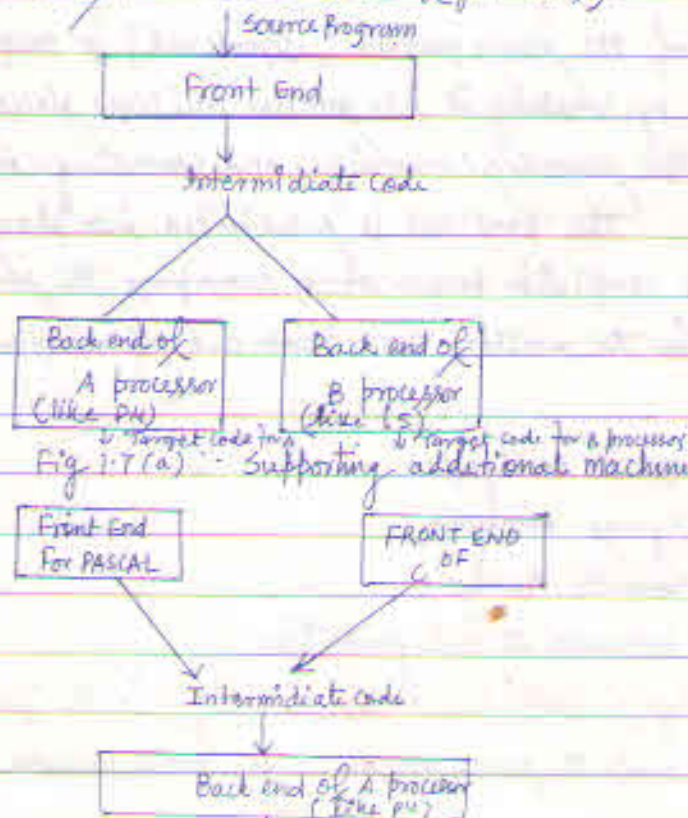 Source Program
Front End
Intermidiate Code
Back end of
A processor
(like P4)
Back end of
B processor
(like i5)
↓ Target code for A
↓ Target code for B processor
Fig 1.7 (a) Supporting additional machine
Front End
For PASCAL
FRONT END
OF
C
Intermidiate code
Back end of A processor
(like P4)